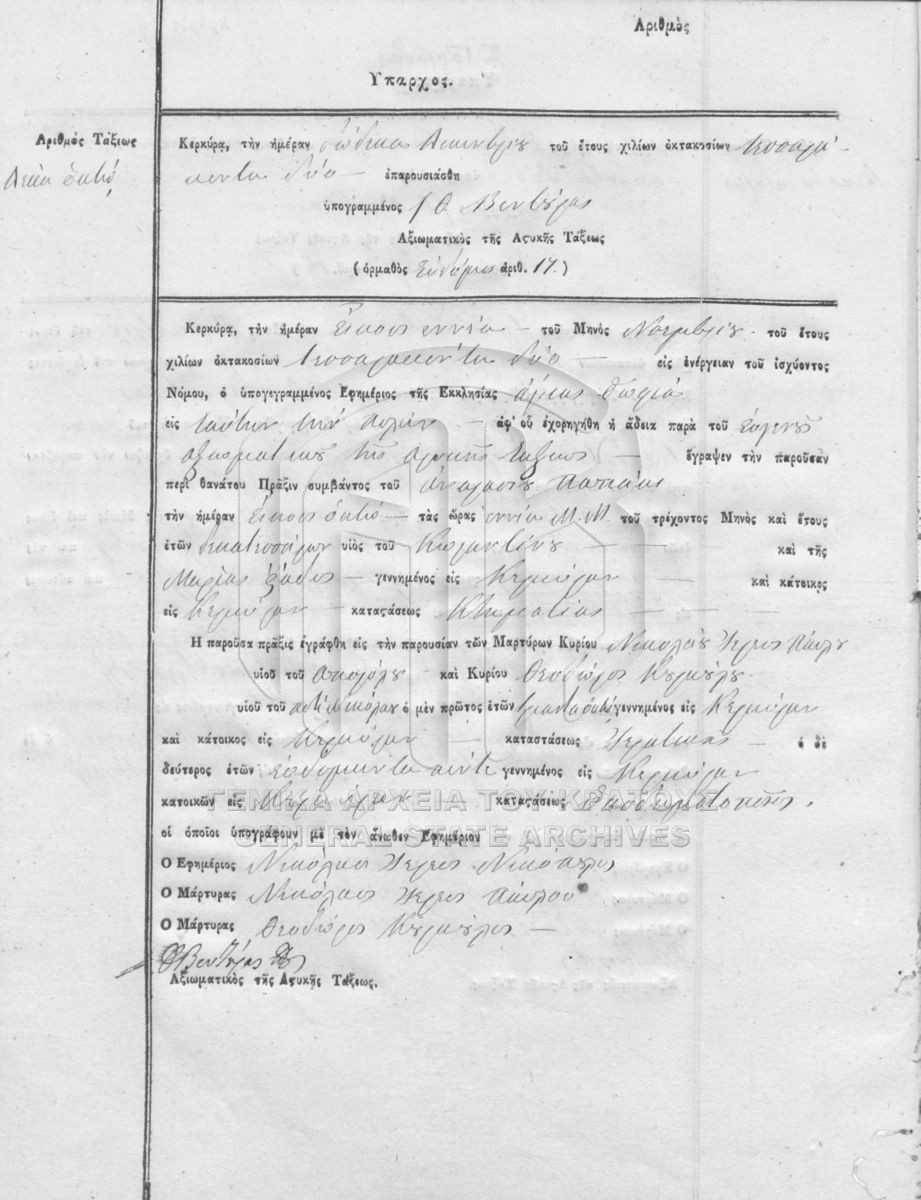 Αριθμὸς
Υπαρχος.
Αριθμὸς Τάξεως
Δεκα οκτώ
Κερκύρα, τὴν ἡμέραν δώδεκα Δεκεμβρίου τοῦ ἔτους χιλίων ὀκτακοσίων τεσσαρά-
κοντα δύο — ἐπαρουσιάσθη
ὑπογραμμένος Βεντούρας
Αξιωματικὸς τῆς Αςυκῆς Τάξεως
(ὁρμαθὸς ἕβδομος ἀριθ. 17.)
Κερκύρα, τὴν ἡμέραν Είκοσι εννέα — τοῦ Μηνὸς Νοεμβρίου τοῦ ἔτους
χιλίων ὀκτακοσίων τεσσαρακοντα δύο — εἰς ἐνέργειαν τοῦ ἰσχύοντος
Νόμου, ὁ ὑπογεγραμμένος Εφημέριος τῆς Εκκλησίας ἁγίας Σοφίας
εἰς ταύτην τὴν πολιν — ἀφ' οὗ ἐχορηγήθη ἡ ἄδεια παρὰ τοῦ Εὐγενοῦς
αξιωματικου της αςυκης ταξεως — ἔγραψεν τὴν παροῦσαν
περὶ θανάτου Πρᾶξιν συμβάντος τοῦ
τὴν ἡμέραν Είκοσι οκτώ — τὰς ὥρας εννέα Μ. Μ. τοῦ τρέχοντος Μηνὸς καὶ ἔτους
ἐτῶν δεκατεσσάρων υἱὸς τοῦ Κωσταντίνου — — καὶ τῆς
Μαρίας — γεννημένος εἰς Κερκύραν — καὶ κάτοικος
εἰς Κερκύραν — καταςάσεως Κτηματίας — —
Η παροῦσα πρᾶξις ἐγράφθη εἰς τὴν παρουσίαν τῶν Μαρτύρων Κυρίου Νικολάου Ἱερεως Παύλου
υἱοῦ τοῦ — καὶ Κυρίου Θεοδώρος
υἱοῦ τοῦ ποτὲ Νικολάου ὁ μὲν πρῶτος ἐτῶν τριανταοκτώ γεννημένος εἰς Κερκύραν
καὶ κάτοικος εἰς Κερκύραν — καταστάσεως Ἱερατικης — ὁ δὲ
δεύτερος ἐτῶν εβδομηντα πέντε γεννημένος εἰς Κερκύραν
κατοικῶν εἰς Κερκύραν καταςάσεως
οἱ ὁποῖοι ὑπογράφουν μὲ τὸν ἄνωθεν Εφημέριον
Ο Εφημέριος Νικόλαος Ἱερευς
Ο Μάρτυρας Νικόλαος Ἱερευς Παύλου
Ο Μάρτυρας Θεοδώρος —
Βεντούρας
Αξιωματικὸς τῆς Αςυκῆς Τάξεως.
ΓΕΝΙΚΑ ΑΡΧΕΙΑ ΤΟΥ ΚΡΑΤΟΥΣ
GENERAL STATE ARCHIVES